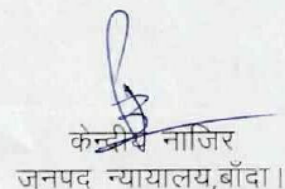 केन्द्रीय नाजिर
जनपद न्यायालय,बाँदा।